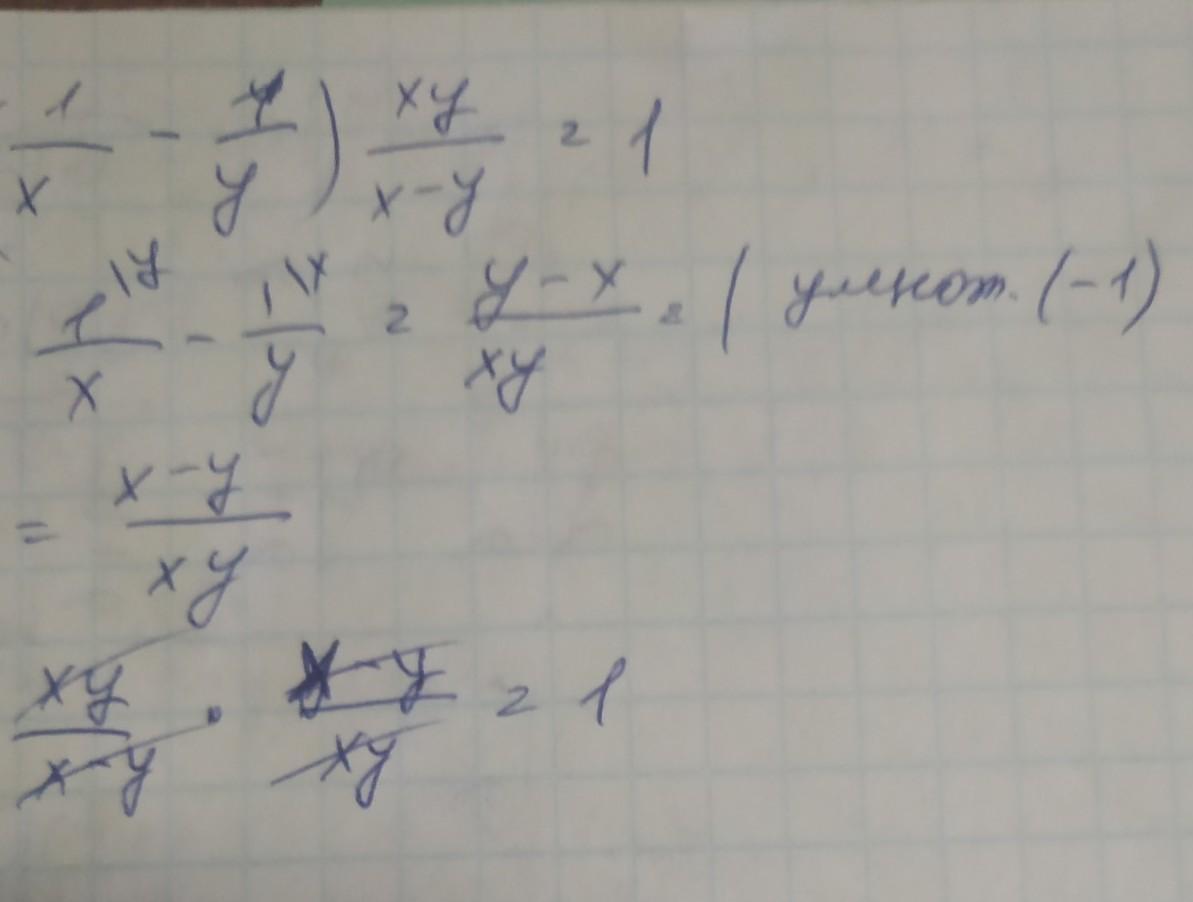 1/x - 1/y) xy/(x-y) = 1
1\y/x - 1\x/y = (y-x)/xy = ( умнож. (-1)
= (x-y)/xy
xy/(x-y) · (x-y)/xy = 1